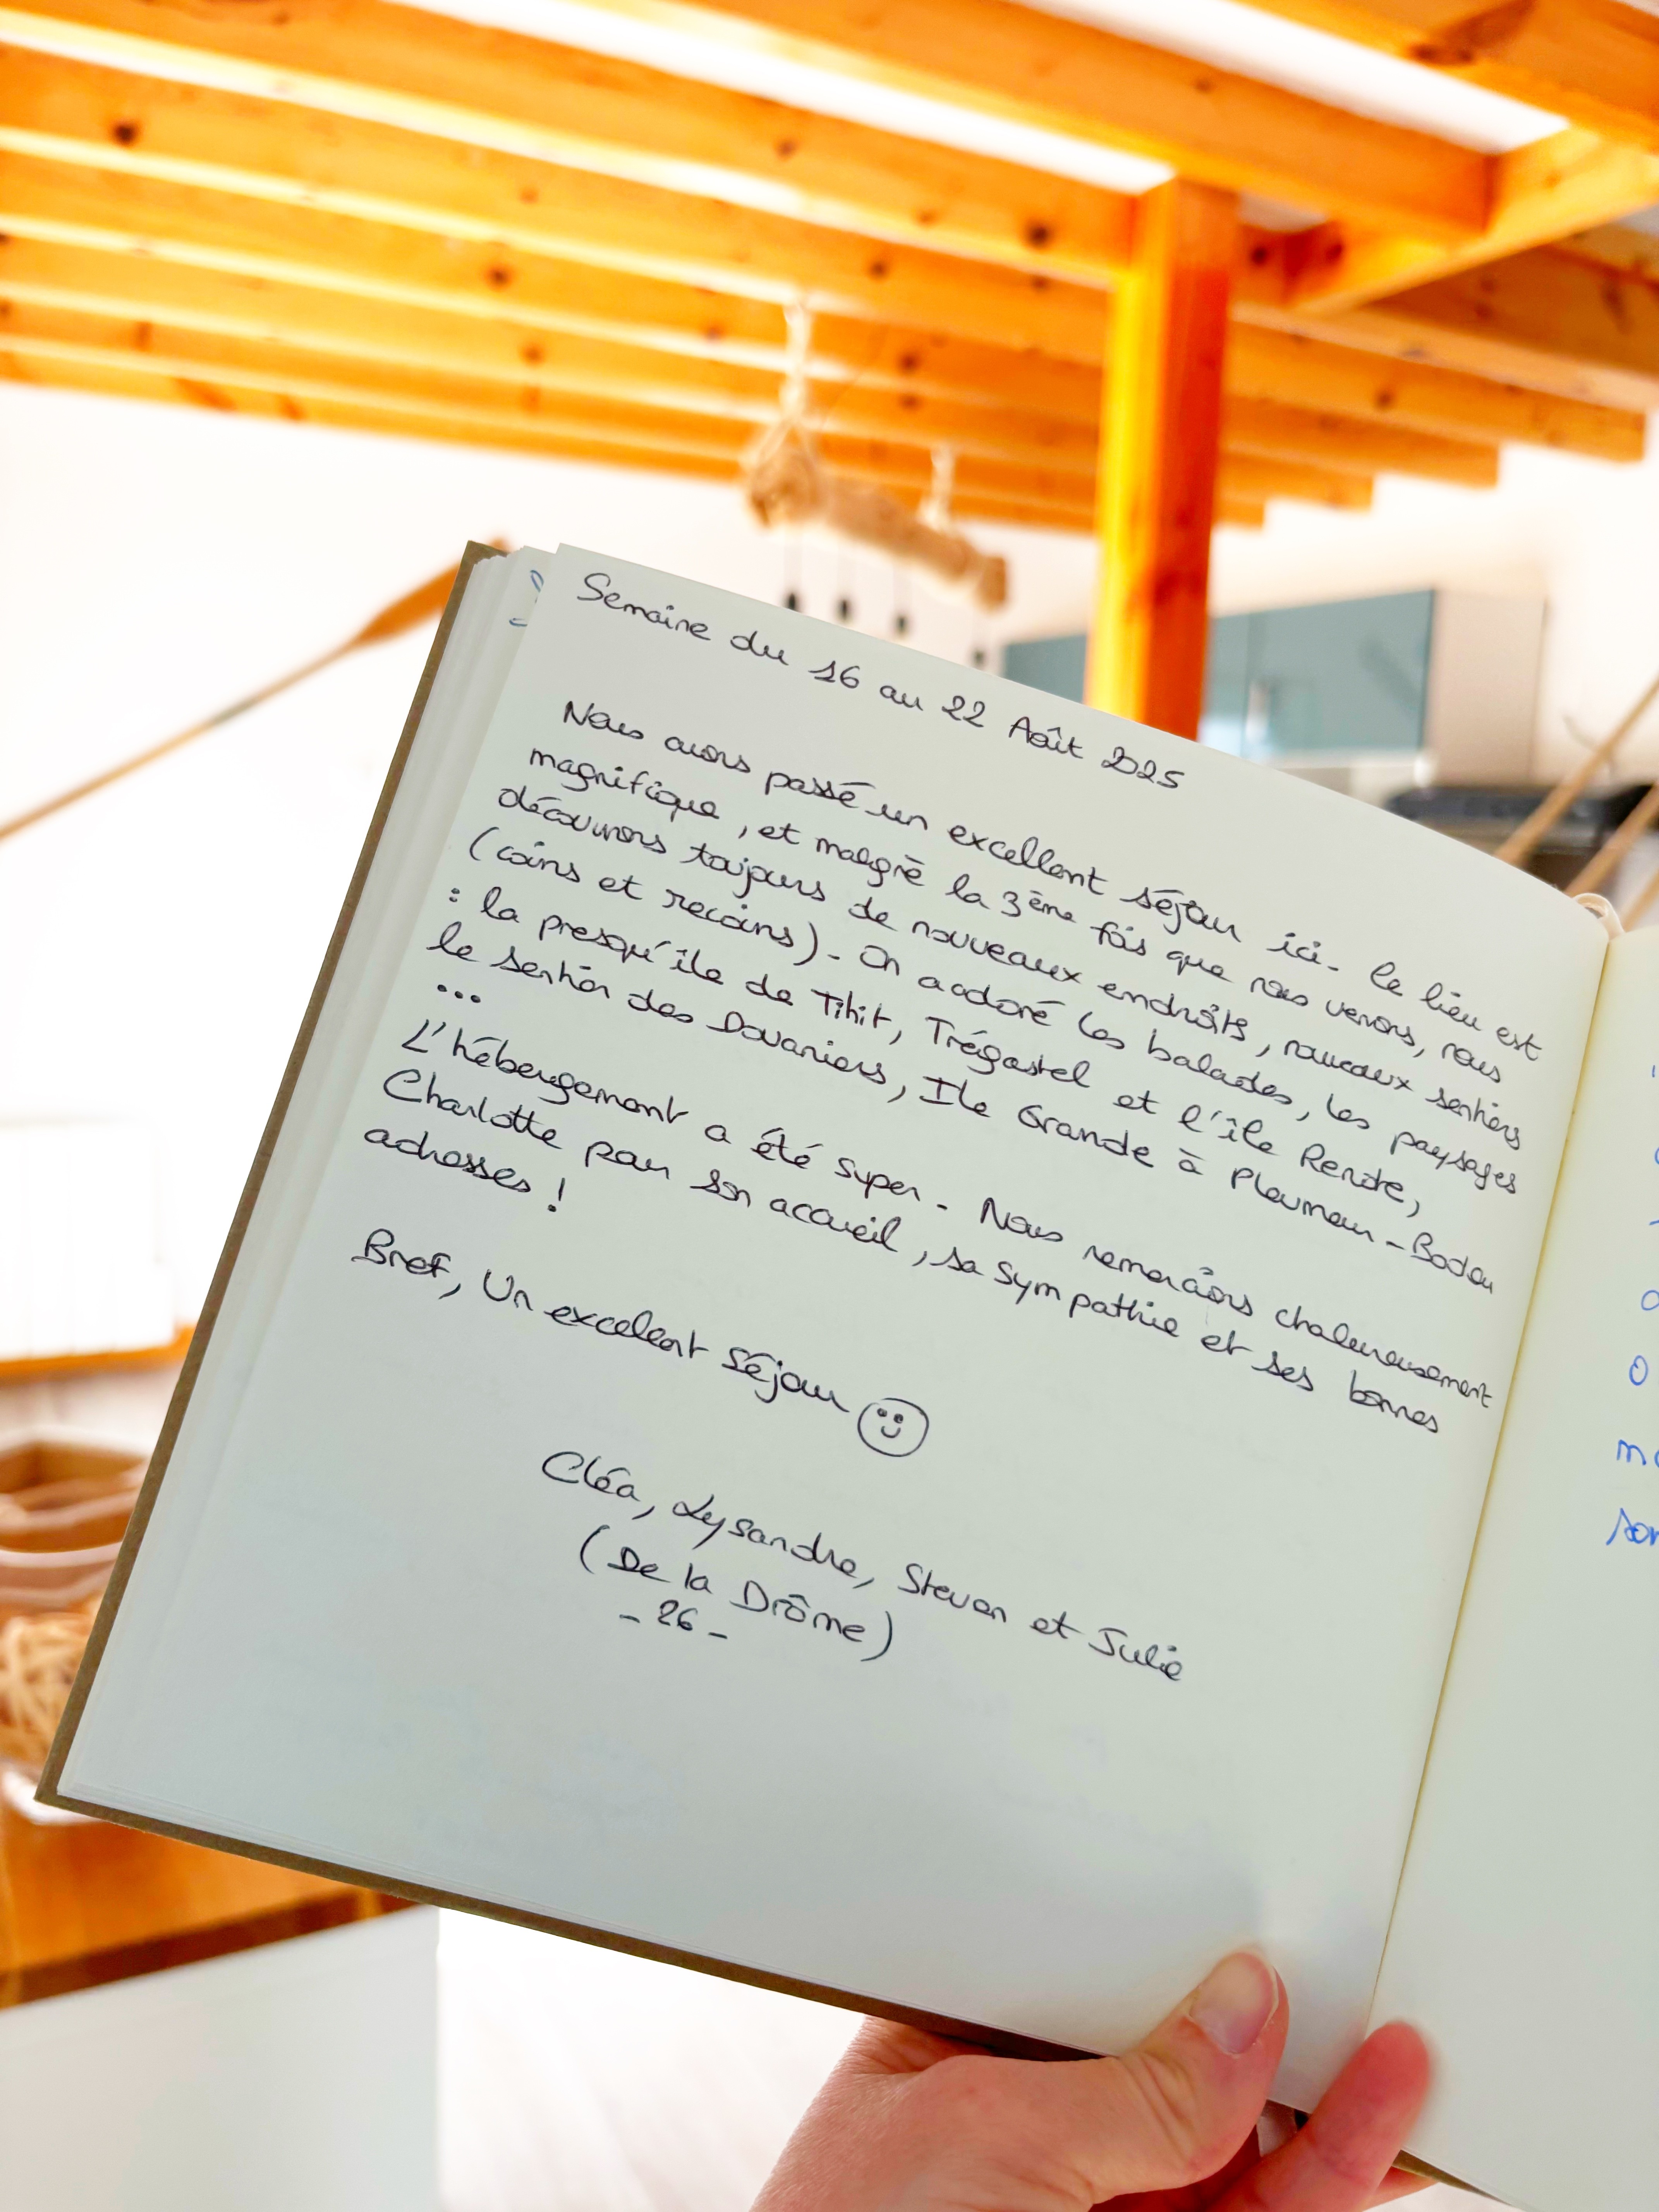 Semaine du 16 au 22 Août 2025
Nous avons passé un excellent séjour ici. Le lieu est
magnifique, et malgré la 3ème fois que nous venons, nous
découvrons toujours de nouveaux endroits, nouveaux sentiers
(coins et recoins). On a adoré les balades, les paysages
: la presqu'île de Tihit, Trégastel et l'île Renote,
le sentier des Douaniers, Ile Grande à Pleumeur-Bodou
...
L'hébergement a été super. Nous remercions chaleureusement
Charlotte pour son accueil, sa sympathie et ses bonnes
adresses !
Bref, Un excellent séjour
Cléa, Lysandre, Stevan et Julie
(De la Drôme)
- 26 -